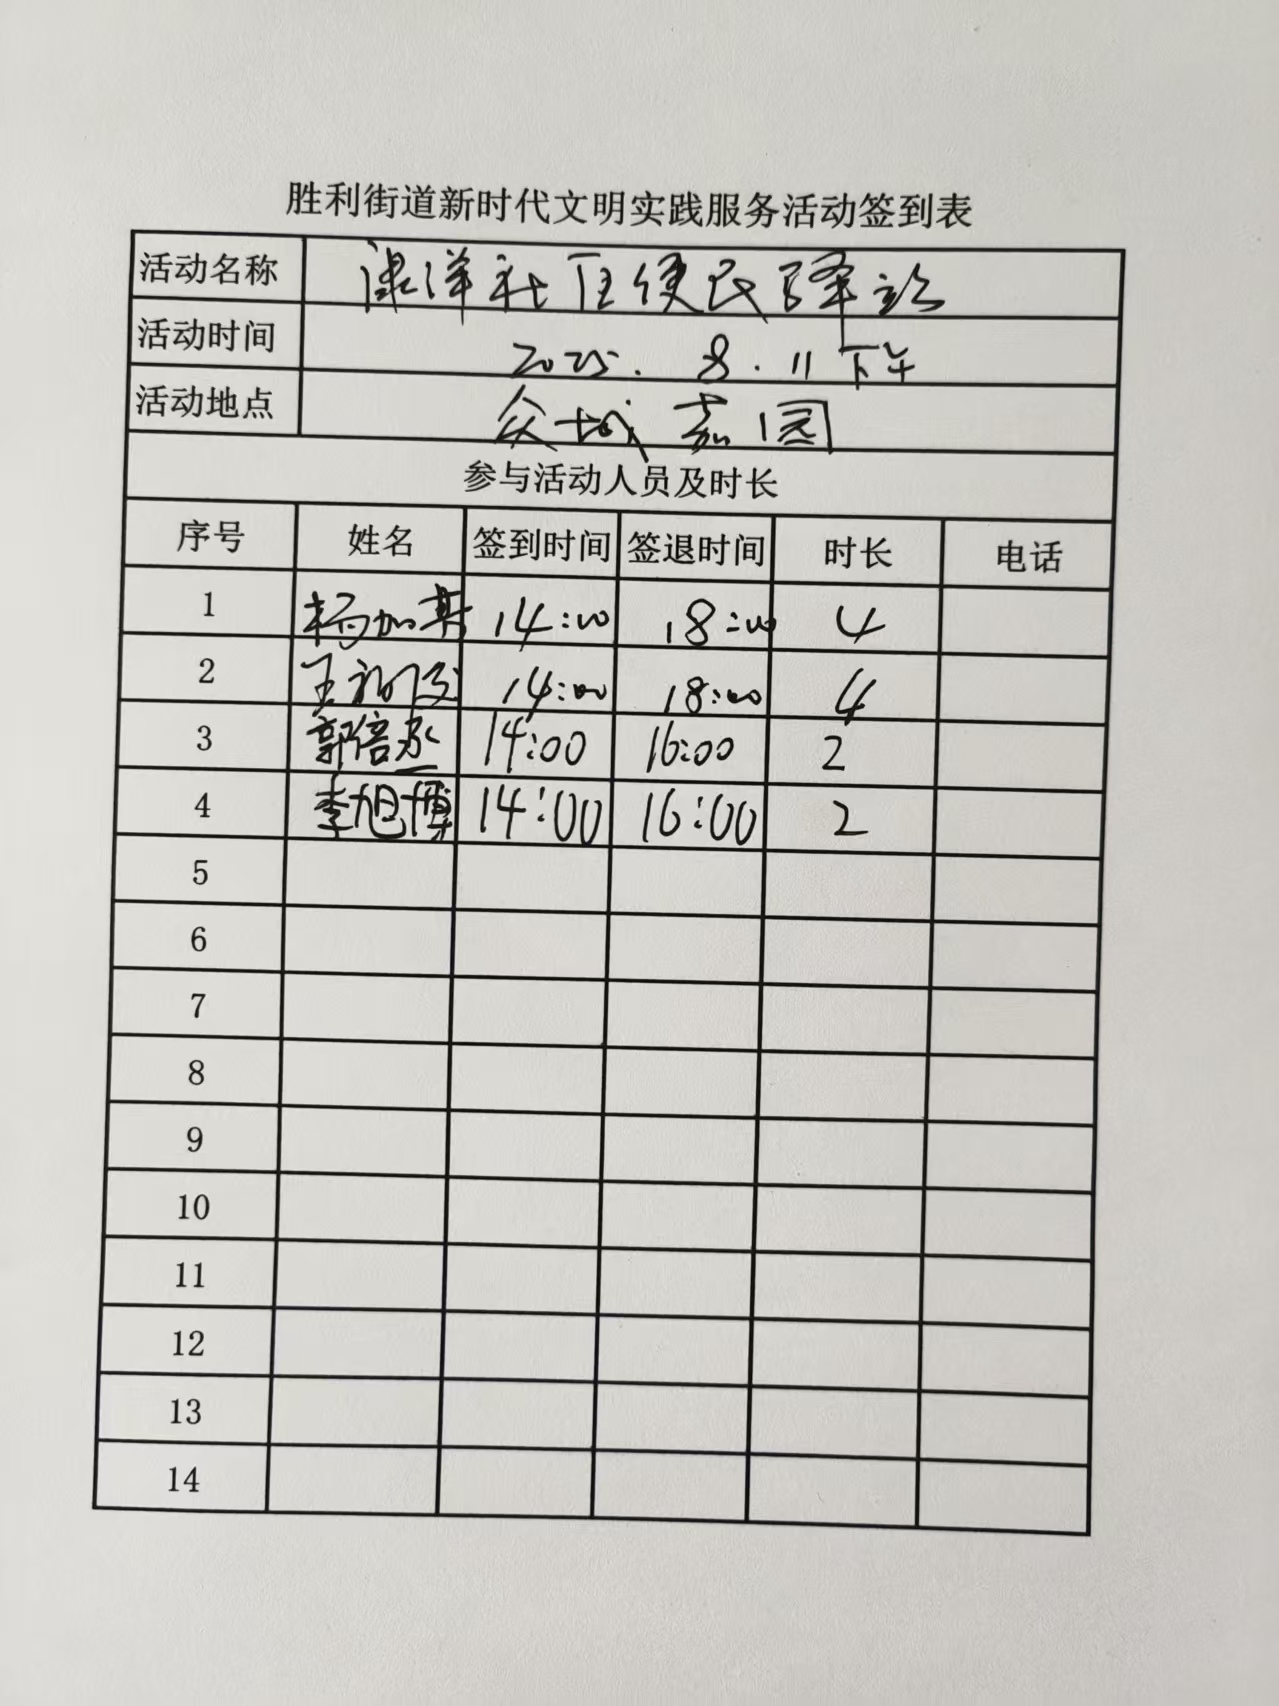 胜利街道新时代文明实践服务活动签到表
活动名称 洋社区便民驿站
活动时间 2025.8.11下午
活动地点 众城嘉园
参与活动人员及时长
序号 姓名 签到时间 签退时间 时长 电话
1 杨加 14:00 18:00 4
2 王 14:00 18:00 4
3 郭倍丞 14:00 16:00 2
4 李旭博 14:00 16:00 2
5
6
7
8
9
10
11
12
13
14